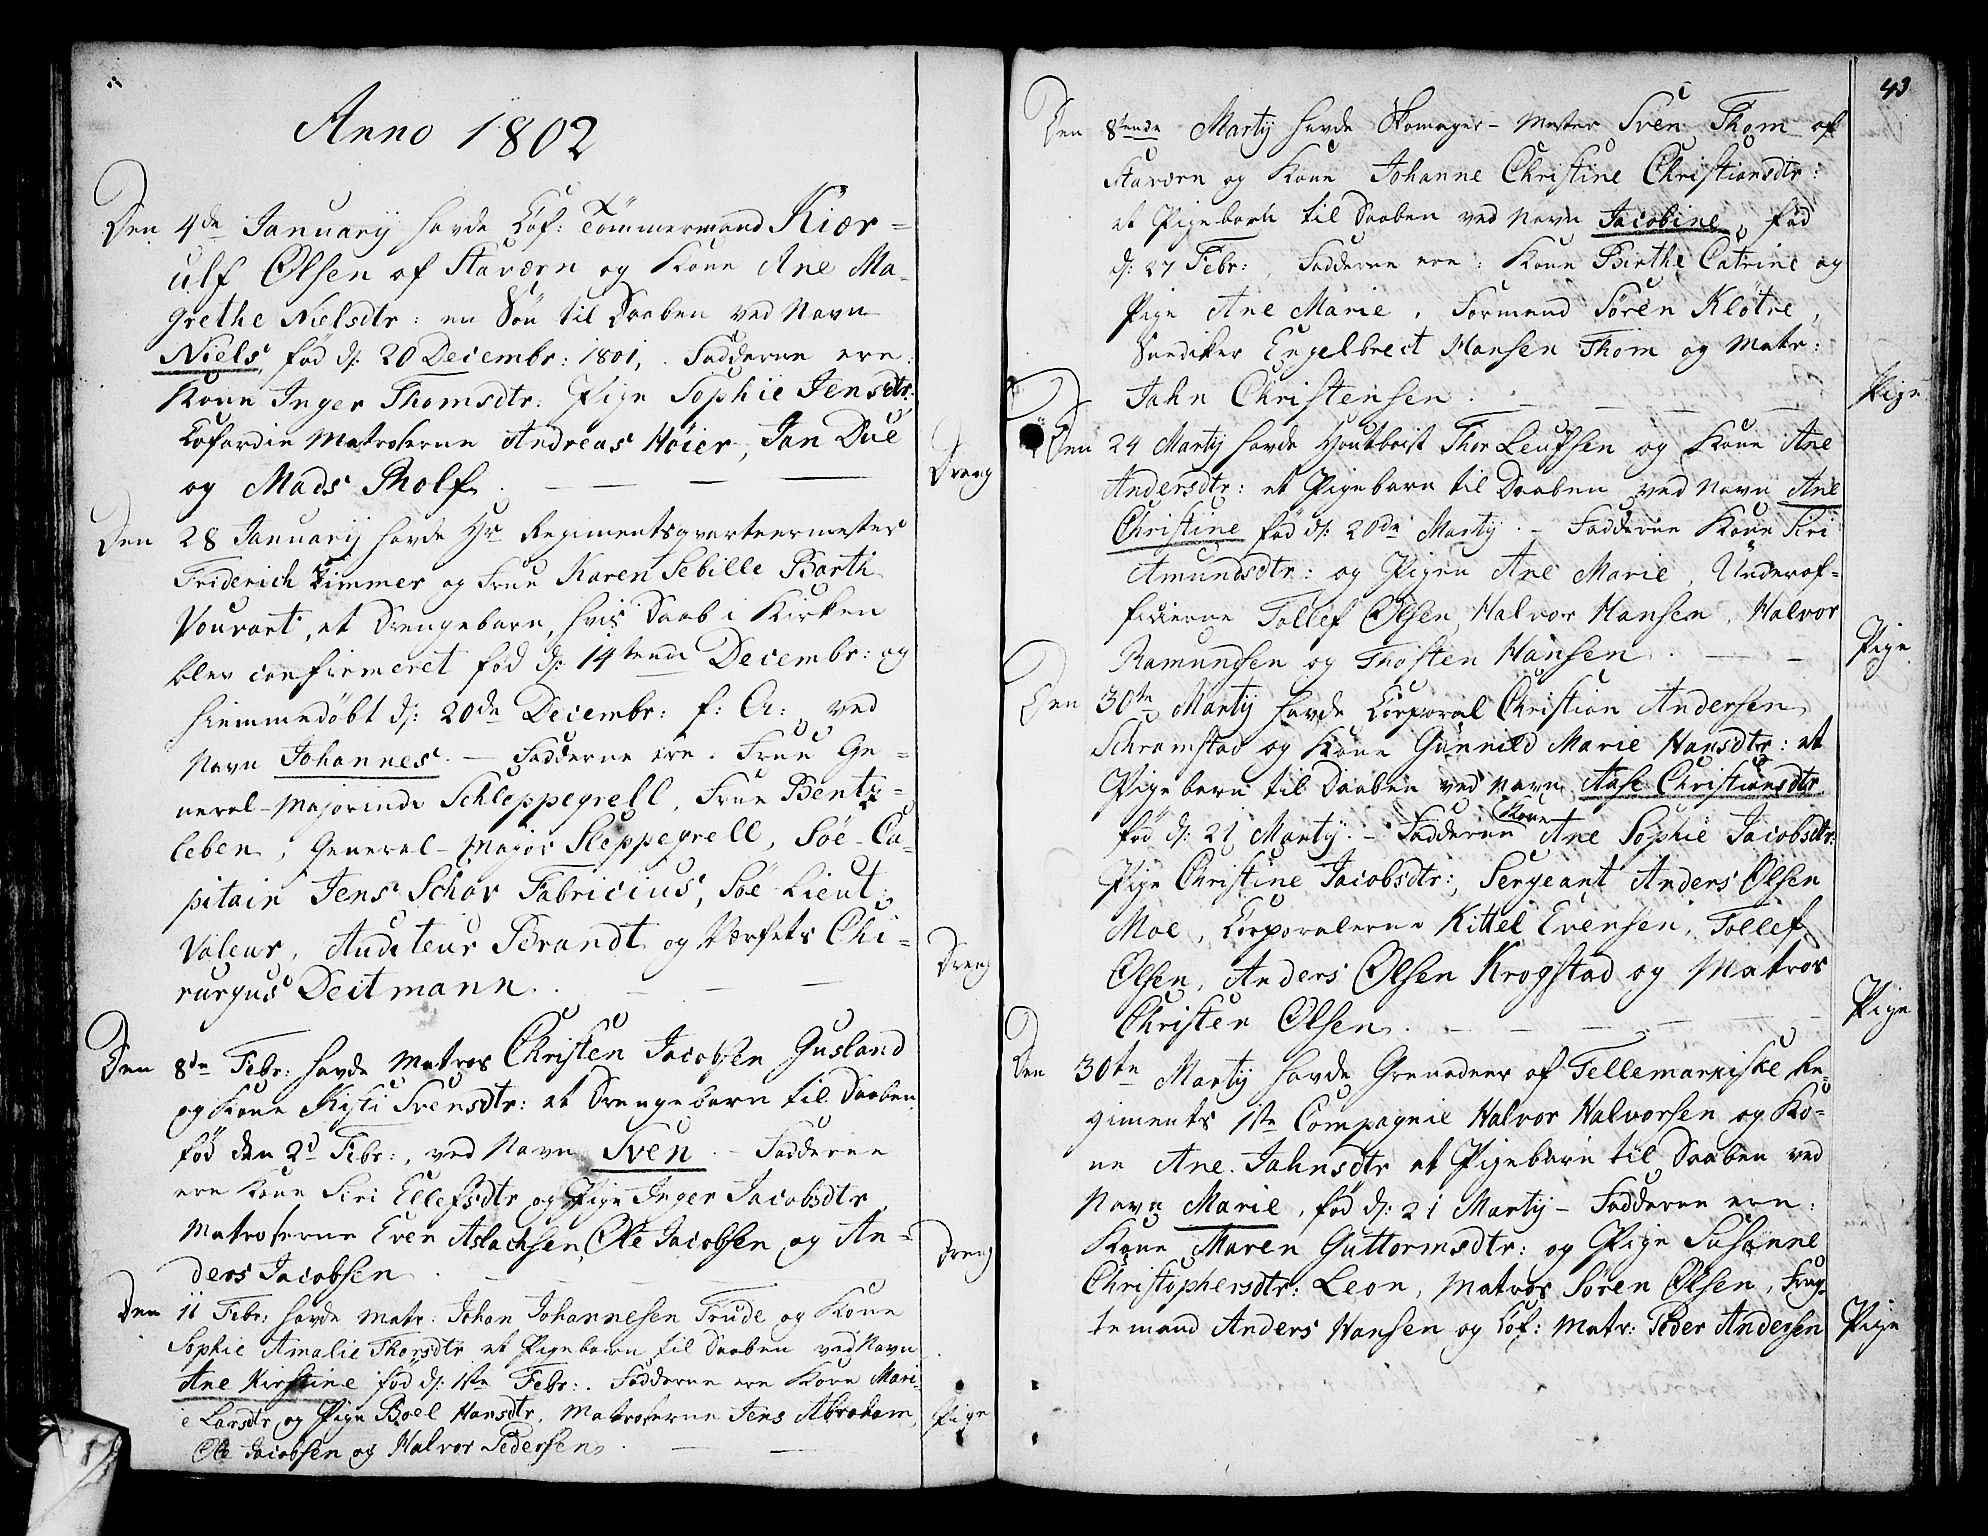 Anno 1802
Den 4de Januarij havde Cof: Tömmermand Kiær=
ulf Olsen af Staværn og Kone Ane Ma=
grethe Nielsdtr: en Sön til Daaben ved Navn
Niels, föd d: 20 Decembr: 1801, Fadderne ere:
Kone Inger Thomsdtr. Pige Sophie Jensdtr:
Cofardie Matroserne Andreas Höier, Jan Due
og Mads Rolf.
Dreng
Den 28 Januarij havde Hr Regimentsqvarteermester
Friderich Zimmer og Frue Karen Sebille Barth
Vouvart, et Drengebarn, hvis Daab i Kirken
blev confirmeret föd d: 14tende Decembr: og
hiemmedöbt d: 20de Decembr: f: A: ved
Navn Johannes. - Fadderne ere: Frue Ge=
neral-Majorinde Schleppegrell, Frue Bentz=
leben, General-Major Sleppegrell, Söe-Ca=
pitain Jens Schov Fabricius, Söe-Lieut:
Valeur, Auditeur Brandt og Værfets Chi=
rurgus Deitmann.
Dreng
Den 8de Febr: havde Matros Christen Jacobsen Gusland
og Kone Kisti Svensdtr: et Drengebarn til Daaben
föd den 2d Febr:, ved Navn Sven - Fadderne
ere Kone Siri Ellefsdtr og Pige Inger Jacobsdtr
Matroserne Even Aslachsen, Ole Jacobsen og An=
ders Jacobsen
Dreng
Den 11 Febr: havde Matr: Johan Johannesen Trude og Kone
Sophie Amalie Thorsdtr et Pigebarn til Daaben ved Navn
Ane Kirstine föd d: 1te Febr:. Fadderne ere Kone Mari
e Larsdtr og Pige Boel Hansdtr, Matroserne Jens Abraham,
Ole Jacobsen og Halvor Pedersen
Pige
43
Den 8tende Martij havde Skomager-Mester Sven Thom af
Staværn og Kone Johanne Christine Christiansdtr:
et Pigebarn til Daaben ved Navn Jacobine, föd
d: 27 Febr:, Fadderne ere: Kone Birthe Catrine og
Pige Ane Marie, Formand Sören Klötre,
Snediker Engelbrect Hansen Thom og Matr:
Jahn Christensen.
Pige
Den 24 Martij havde Houtboist Thor Leufsen og Kone Ane
Andersdtr: et Pigebarn til Daaben ved Navn Ane
Christine föd d: 20de Martij. - Fadderne Kone Siri
Amundsdtr: og Pigen Ane Marie, Underof=
ficierne Tollef Olsen, Halvor Hansen, Halvor
Ramundsen og Thosten Hansen.
Pige
Den 30te Martij havde Corporal Christian Andersen
Schramstad og Kone Gunnild Marie Hansdtr: et
Pigebarn til Daaben ved Navn Aase Christiansdtr
föd d: 21 Martij. - Fadderne Kone Ane Sophie Jacobsdtr:
Pige Christine Jacobsdtr:, Sergeant Anders Olsen
Moe, Corporalerne Kittel Evensen, Tollef
Olsen, Anders Olsen Krogstad og Matros
Christen Olsen.
Pige
Den 30te Martij havde Grenadeer af Tellemarkiske Re=
giments 1te Compagnie Halvor Halvorsen og Ko=
ne Ane Jahnsdtr et Pigebarn til Daaben ved
Navn Marie, föd d: 21 Martij - Fadderne ere:
Kone Maren Guttormsdtr: og Pige Susanne
Christophersdtr: Leon, Matros Sören Olsen,
temand Anders Hansen og Cof: Matr: Peder Andersen
Pige